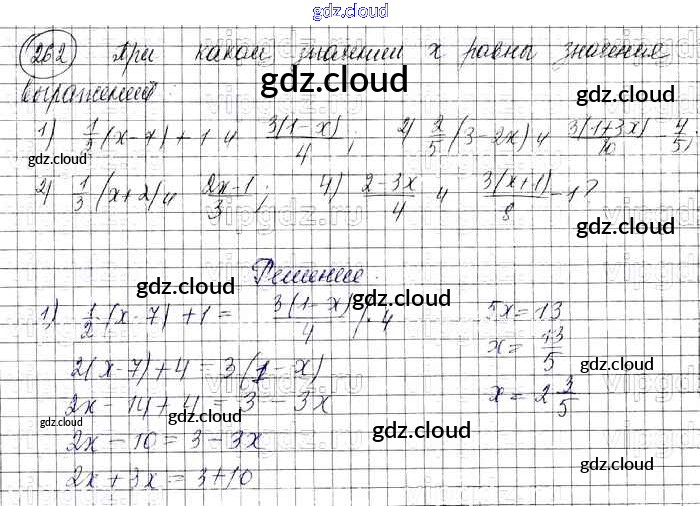 gdz.cloud
262 При каком значении x равны значения
выражений:
1) 1/2 (x-7)+1 и 3(1-x)/4; 2) 2/5 (3-2x) и 3(1+3x)/10 - 4/5;
2) 1/3 (x+2) и 2x-1/3; 4) 2-3x/4 и 3(x+1)/8 - 1?
Решение.
1) 1/2 · (x-7) + 1 = 3(1-x)/4 |·4
2(x-7)+4 = 3(1-x)
2x-14+4 = 3-3x
2x-10 = 3-3x
2x+3x = 3+10
5x = 13
x = 13/5
x = 2 3/5
gdz.cloud
gdz.cloud
gdz.cloud
gdz.cloud
gdz.cloud
gdz.cloud
gdz.cloud
gdz.cloud
gdz.cloud
gdz.cloud
gdz.cloud
gdz.cloud
gdz.cloud